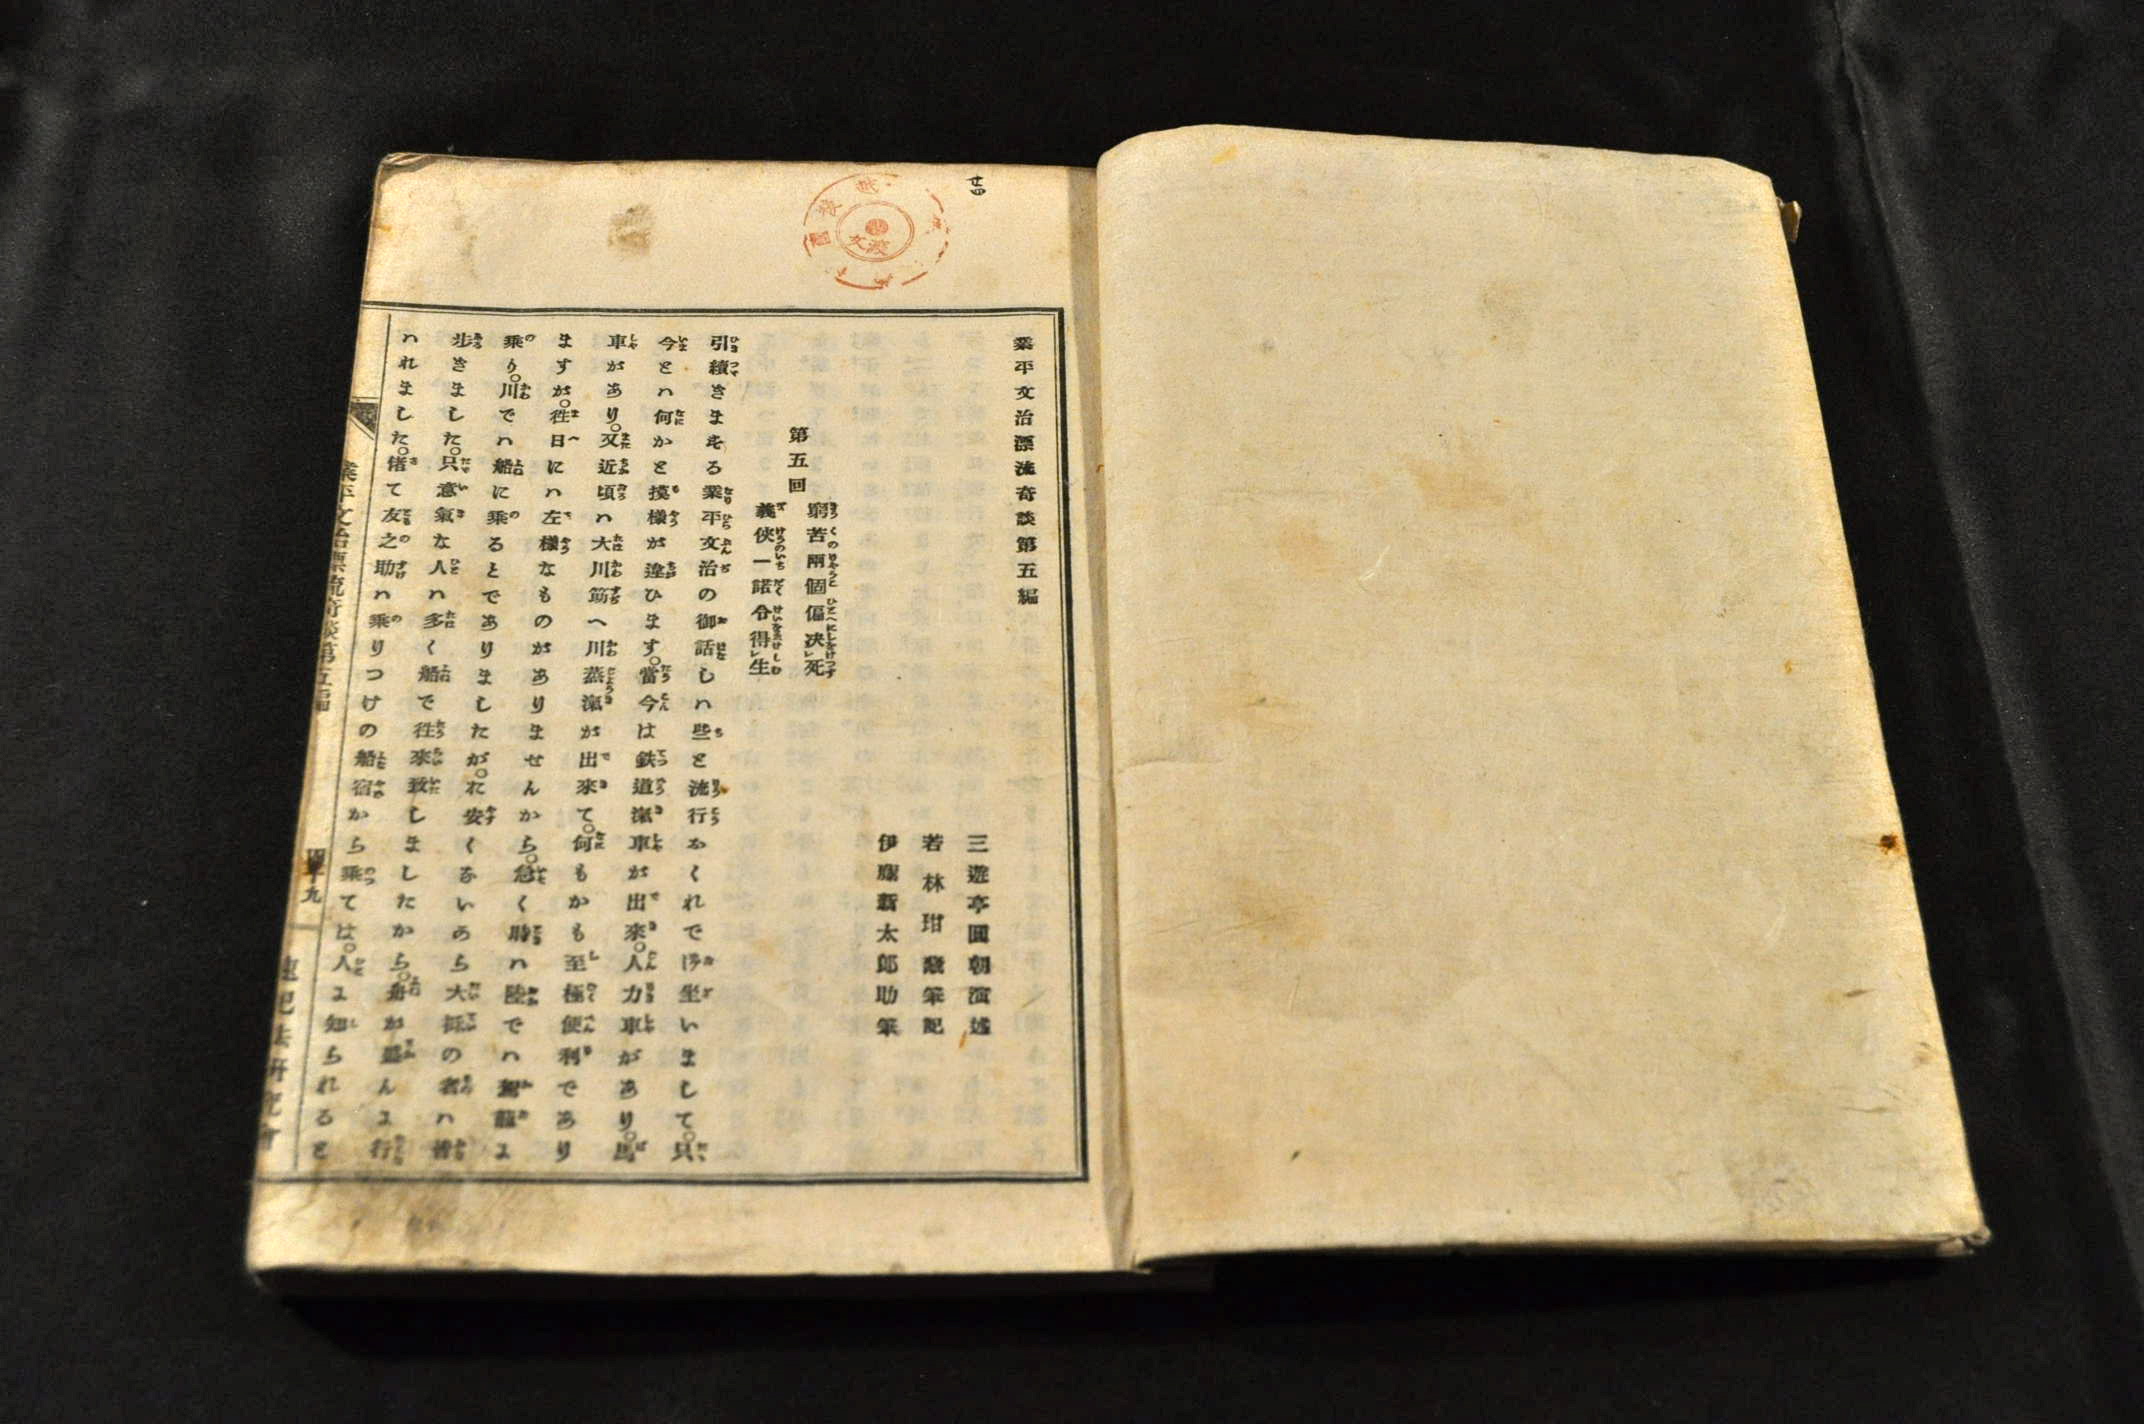 業平文治漂流奇談第五編
三遊亭圓朝演述
若林玵蔵筆記
伊藤新太郎助筆
第五回
窮苦兩個偏决レ死
義侠一諾令得レ生
引續きまする業平文治の御話しハ些と流行おくれで御坐いまして。只
今とハ何かと摸樣が違ひます。當今は鉄道滊車が出來。人力車があり。馬
車があり。又近頃ハ大川筋へ川蒸滊が出來て。何もかも至極便利であり
ますが。徃日にハ左樣なものがありませんから。急く時ハ陸でハ駕籠に
乘り。川でハ船に乘るとでありましたが。お安くないから大抵の者ハ皆
歩きました。只意氣な人ハ多く船で徃來致しましたから。舟が盛んに行
ハれました。偖て友之助ハ乘りつけの船宿から乘ては。人に知られると
業平文治漂流奇談第五編
四十九
速記法研究會
廿四